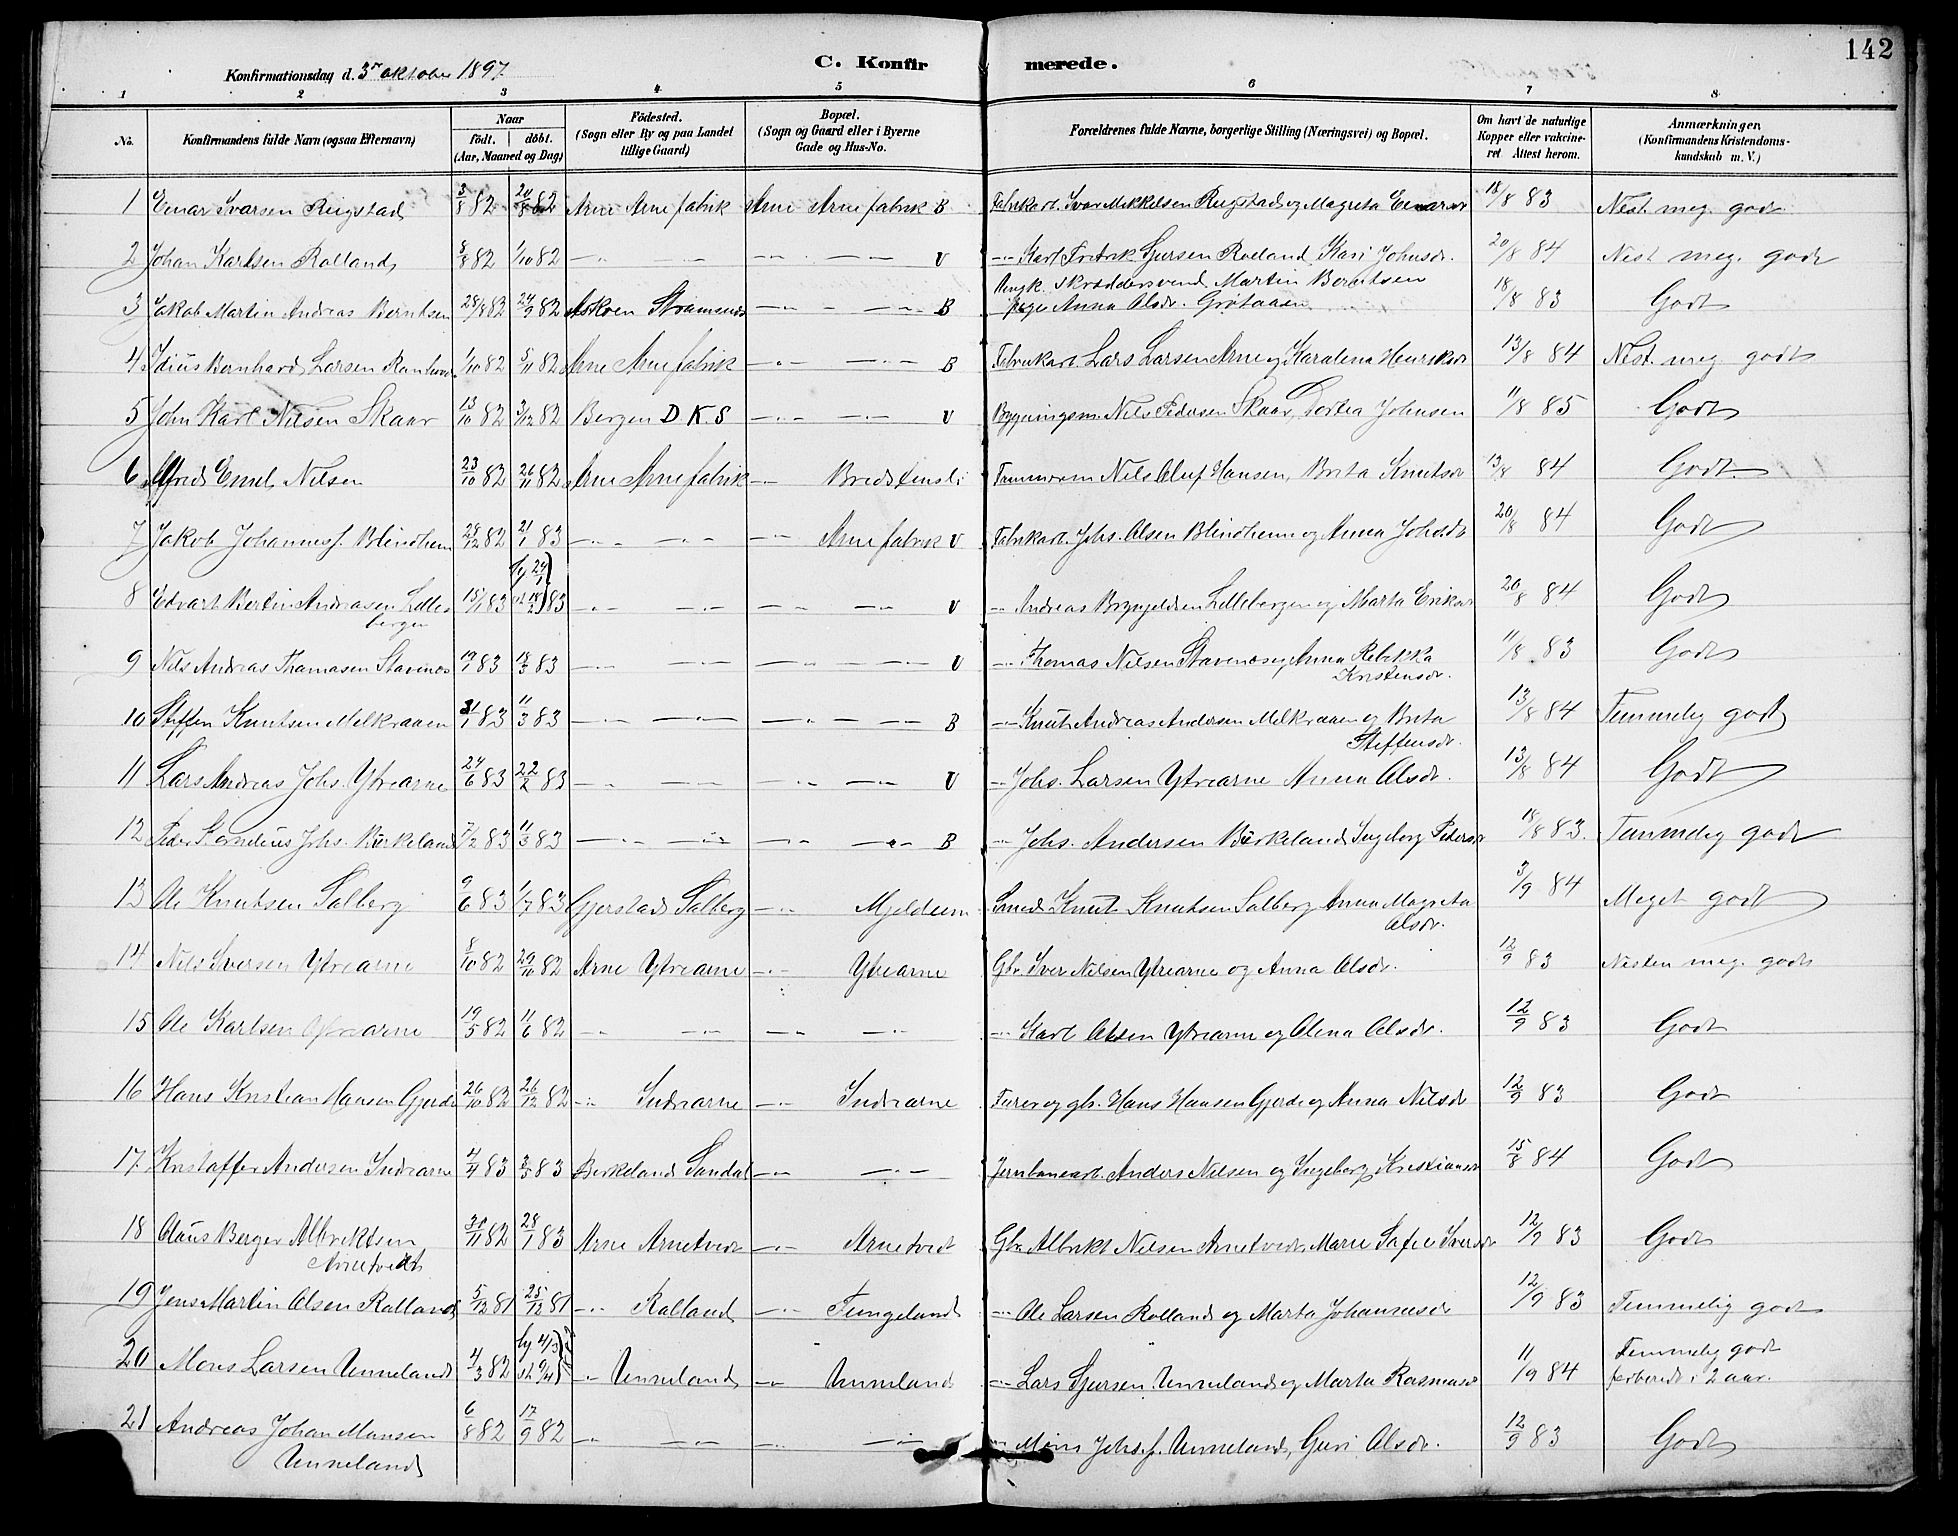 142
Konfirmationsdag d. 3die oktober 1897 C. Konfirmerede.
1 2 3 4 5 6 7 8
No. Konfirmandens fulde Navn (ogsaa Efternavn) Naar født. døbt. (Aar, Maaned og Dag) Fødested. (Sogn eller By og paa Landet tillige Gaard) Bopæl. (Sogn og Gaard eller i Byerne Gade og Hus-No. Forældrenes fulde Navne, borgerlige Stilling (Næringsvei) og Bopæl. Om havt de naturlige Kopper eller vakcineret Attest herom. Anmærkninger. (Konfirmandens Kristendomskundskab m. V.)
1 Einar Ivarsen Rugstad 3/8 82 20/8 82 Arne Arnefabrik Arne Arnefabrik B Fabrikarb. Ivar Mikkelsen Rugstad og Magreta Einarsdr 18/8 83 Nest. meg. godt
2 Johan Karlsen Rolland 8/8 82 1/10 82 — — — — V — Karl Fredrik Gjersen Rolland, Kari Johnsdr. 20/8 84 Nest meg. godt
3 Jakob Martin Andreas Berntsen 28/8 82 24/9 82 Askøen Strømsnes — — B skræddersvend Martin Berntsen
pige Anna Olsdr. 18/8 83 Godt
4 Idius Bernhard Larsen 1/10 82 5/11 82 Arne Arnefabrik — — B Fabrikarb. Lars Larsen Arne og Karolena Henriksdr 13/8 84 Nest. meg. godt
5 John Karl Nilsen Skaar 13/10 82 3/12 82 Bergen D K S — — V Bygningsm. Nils Pedersen Skaar, Dortea Johnsen 11/8 85 Godt
6 Alfred Emil Nilsen 23/10 82 26/11 82 Arne Arnefabrik — Bredstensli Tømmerm Nils Oluf Hansen, Brita Knutsdr 13/8 84 Godt
7 Jakob Johannesf. Blindheim 28/12 82 21/1 83 — — — Arnefabrik V Fabrikarb. Johs. Olsen Blindheim og Anna Johsdr 20/8 84 Godt
8 Edvart Bertin Andreasen Lille-
bergen 15/1 83 hj 24/1 st 18/2 83 — — — — V — Andreas Brynjeldsen Lillebergen og Marta Eriksdr 20/8 84 Godt
9 Nils Andreas Thomasen Stavenes 19/1 83 18/3 83 — — — — V — Thomas Nilsen Stavenes og Anna Rebekka
Kristensdr. 11/8 83 Godt
10 Steffen Knutsen Melkraaen 31/1 83 11/3 83 — — — — B — Knut Andreas Andersen Melkraaen og Brita
Steffensdr. 13/8 84 Temmelig godt
11 Lars Andreas Johs. Ytrearne 24/6 83 22/2 83 — — — — V — Johs. Larsen Ytrearne Anna Olsdr. 13/8 84 Godt
12 Peder Kornelius Johs. Birkeland 7/2 83 11/3 83 — — — — B — Johs. Andersen Birkeland Ingeborg Pedersdr 18/8 83. Temmelig godt
13 Ole Knutsen Solberg 9/6 83 1/7 83 Gjerstad Solberg — Mjeldeim Smed Knut Knutsen Solberg Anna Magreta
Olsdr. 3/9 84 Meget godt
14 Nils Iversen Ytrearne 8/10 82 29/10 82 Arne Ytrearne — Ytrearne Gbr. Iver Nilsen Ytrearne og Anna Olsdr. 12/9 83 Nesten meg. godt
15 Ole Karlsen Ytrearne 19/5 82 11/6 82 — — — — — Karl Olsen Ytrearne og Olena Olsdr. 12/9 83 Godt
16 Hans Kristian Hansen Gjerde 26/10 82 26/12 82 — Indrearne — Indrearne Furer og gbr. Hans Hansen Gjerde og Anna Nilsdr 12/9 83 Godt
17. Kristoffer Andersen Indrearne 4/4 83 3/5 83 Birkeland Sandal — — Jernbanearb. Anders Nilsen og Ingeborg Kristiansdr 15/8 84 Godt
18 Olaus Berger Albriktsen
Arnetvedt 30/11 82 28/1 83 Arne Arnetvedt — Arnetvedt Gbr. Albrikt Nilsen Arnetvedt, Marie Sofie Iversdr 12/9 83 Godt
19 Jens Martin Olsen Rolland 5/12 81 25/12 81 — Rolland — Tungeland — Ole Larsen Rolland og Marta Johannesdr 12/9 83 Temmelig godt
20 Mons Larsen Unneland 4/3 82 hj 4/3 st 9/4 — Unneland — Unneland — Lars Gjersen Unneland og Marta Rasmusdr 11/9 84 Temmelig godt
forberedt i 2 aar.
21 Andreas Johan Monsen
Unneland 6/8 82 17/9 82 — — — — — Mons Johs.f. Unneland, Guri Olsdr. 12/9 83 Godt